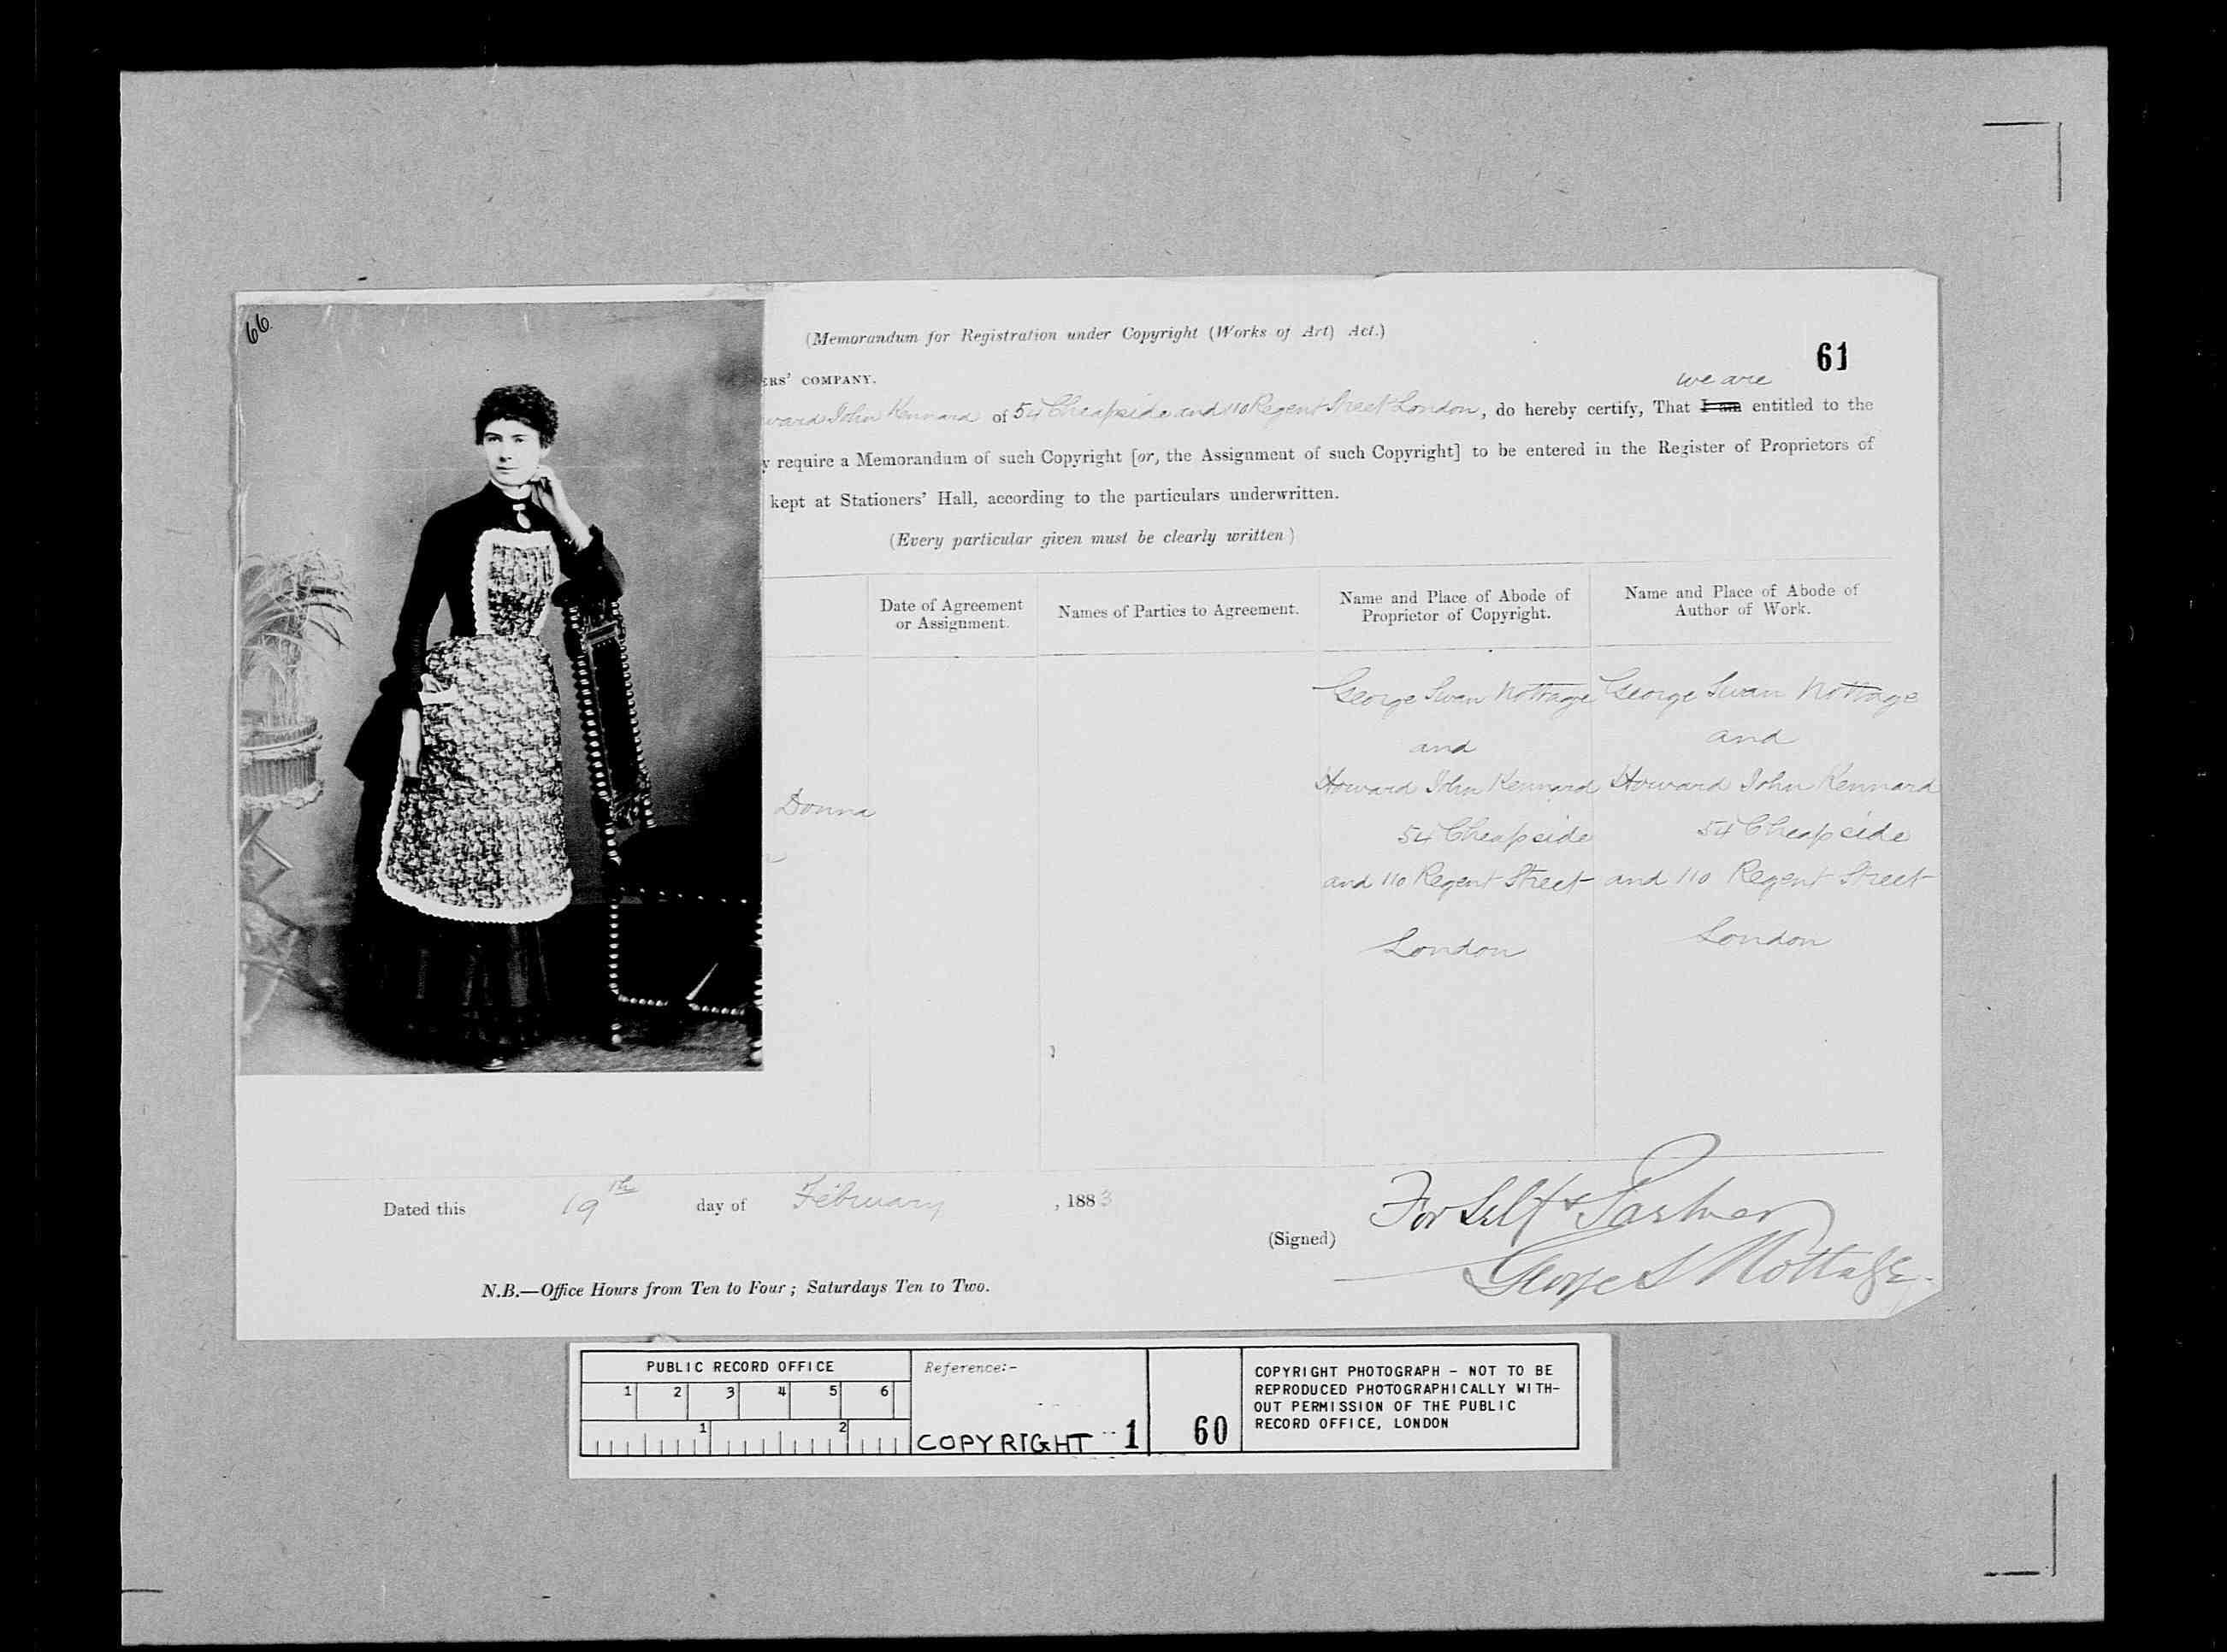 66.
(Memorandum for Registration under Copyright (Works of Art) Act.)
61
ERS' COMPANY.
we are
ward John Kennard of 54 Cheapside and 110 Regent Street London, do hereby certify, That I am entitled to the
y require a Memorandum of such Copyright [or, the Assignment of such Copyright] to be entered in the Register of Proprietors of
kept at Stationers' Hall, according to the particulars underwritten.
(Every particular given must be clearly written)
Date of Agreement
or Assignment.
Names of Parties to Agreement.
Name and Place of Abode of
Proprietor of Copyright.
Name and Place of Abode of
Author of Work.
Donna
George Swan Nottage
and
Howard John Kennard
54 Cheapside
and 110 Regent Street
London
George Swan Nottage
and
Howard John Kennard
54 Cheapside
and 110 Regent Street
London
Dated this 19th day of February, 1883
(Signed) For Self & Partner
George S Nottage
N.B.—Office Hours from Ten to Four; Saturdays Ten to Two.
PUBLIC RECORD OFFICE
1 2 3 4 5 6
1 2
Reference:-
COPYRIGHT 1
60
COPYRIGHT PHOTOGRAPH - NOT TO BE
REPRODUCED PHOTOGRAPHICALLY WITH-
OUT PERMISSION OF THE PUBLIC
RECORD OFFICE, LONDON